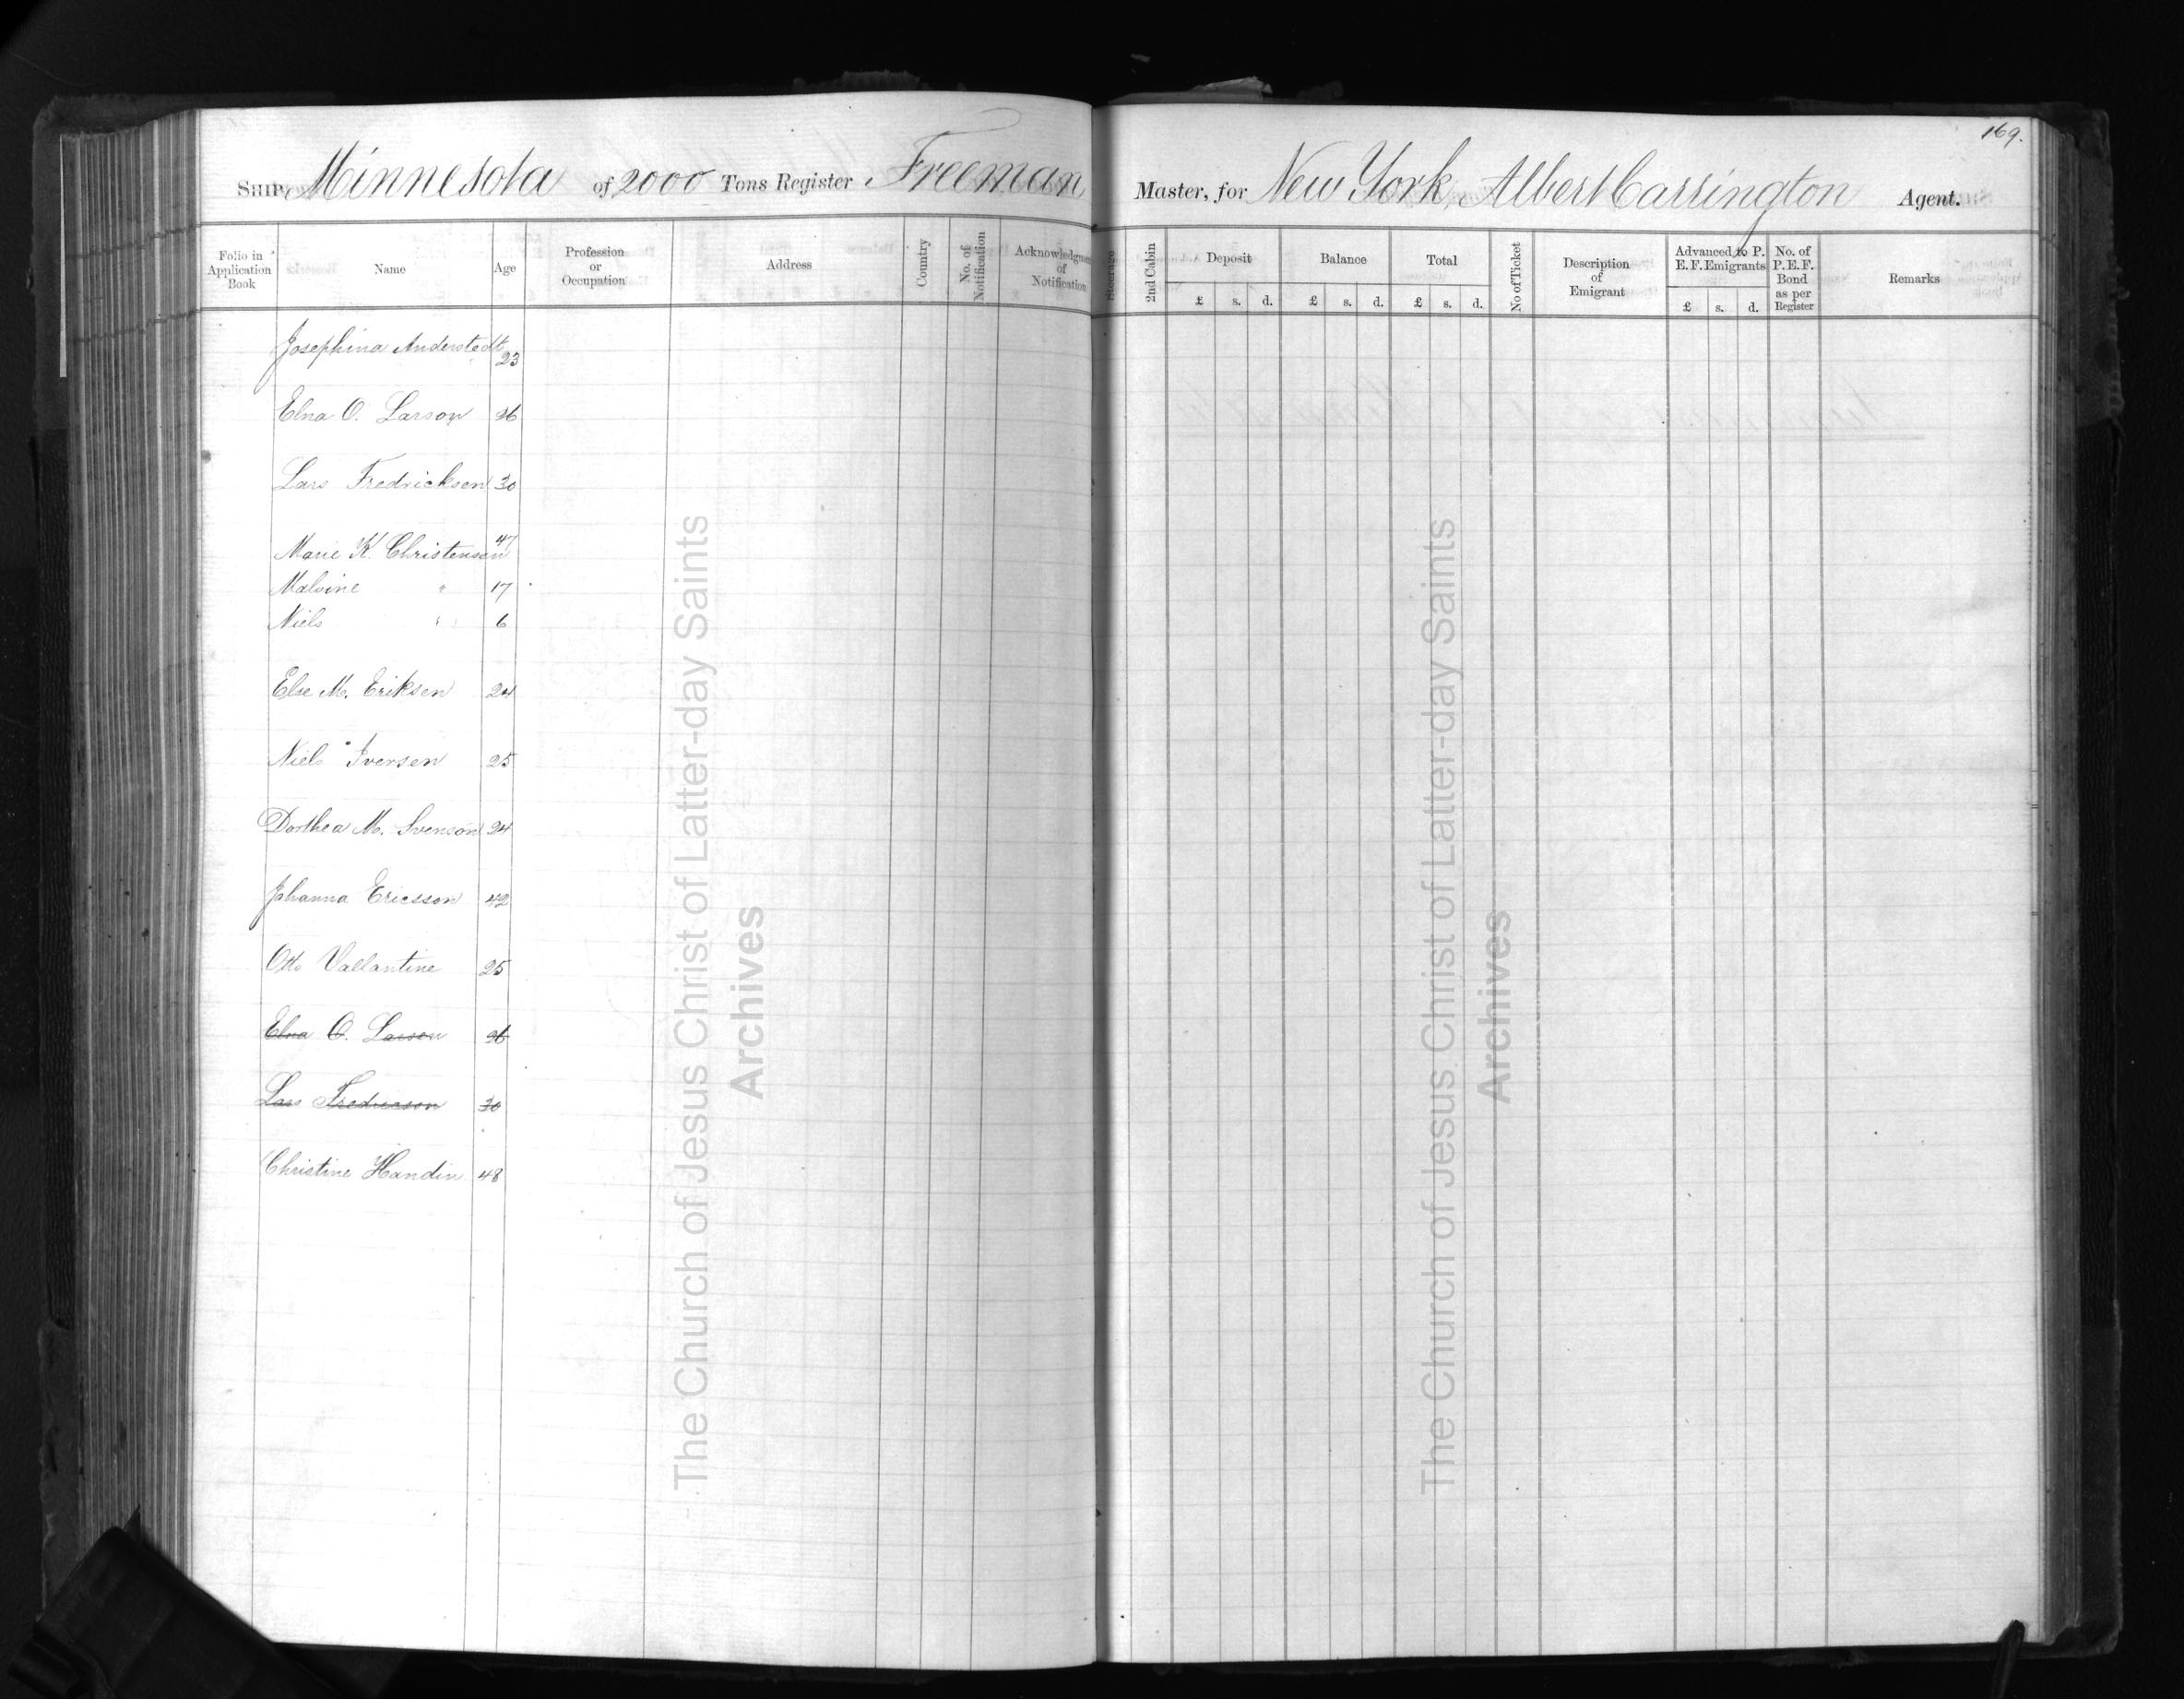 169.
SHIP Minnesota of 2000 Tons Register Freeman Master, for New York, Albert Carrington Agent.
Folio in Application Book Name Age Profession or Occupation Address Country No. of Notification Acknowledgment of Notification Steerage 2nd Cabin Deposit £ s. d. Balance £ s. d. Total £ s. d. No of Ticket Description of Emigrant Advanced to P. E. F. Emigrants £ s. d. No. of P. E. F. Bond as per Register Remarks
Josephina Anderstedt 23
Elna O. Larson 26
Lars Fredricksen 30
Marie K. Christensen 47
Malvine " 17
Niels " 6
Else M. Eriksen 24
Niels Iversen 25
Dorthea M. Svenson 24
Johanna Ericsson 42
Otto Vallantine 25
Elna O. Larsen 26
Lars Fredricson 30
Christine Handin 48
The Church of Jesus Christ of Latter-day Saints
Archives
The Church of Jesus Christ of Latter-day Saints
Archives